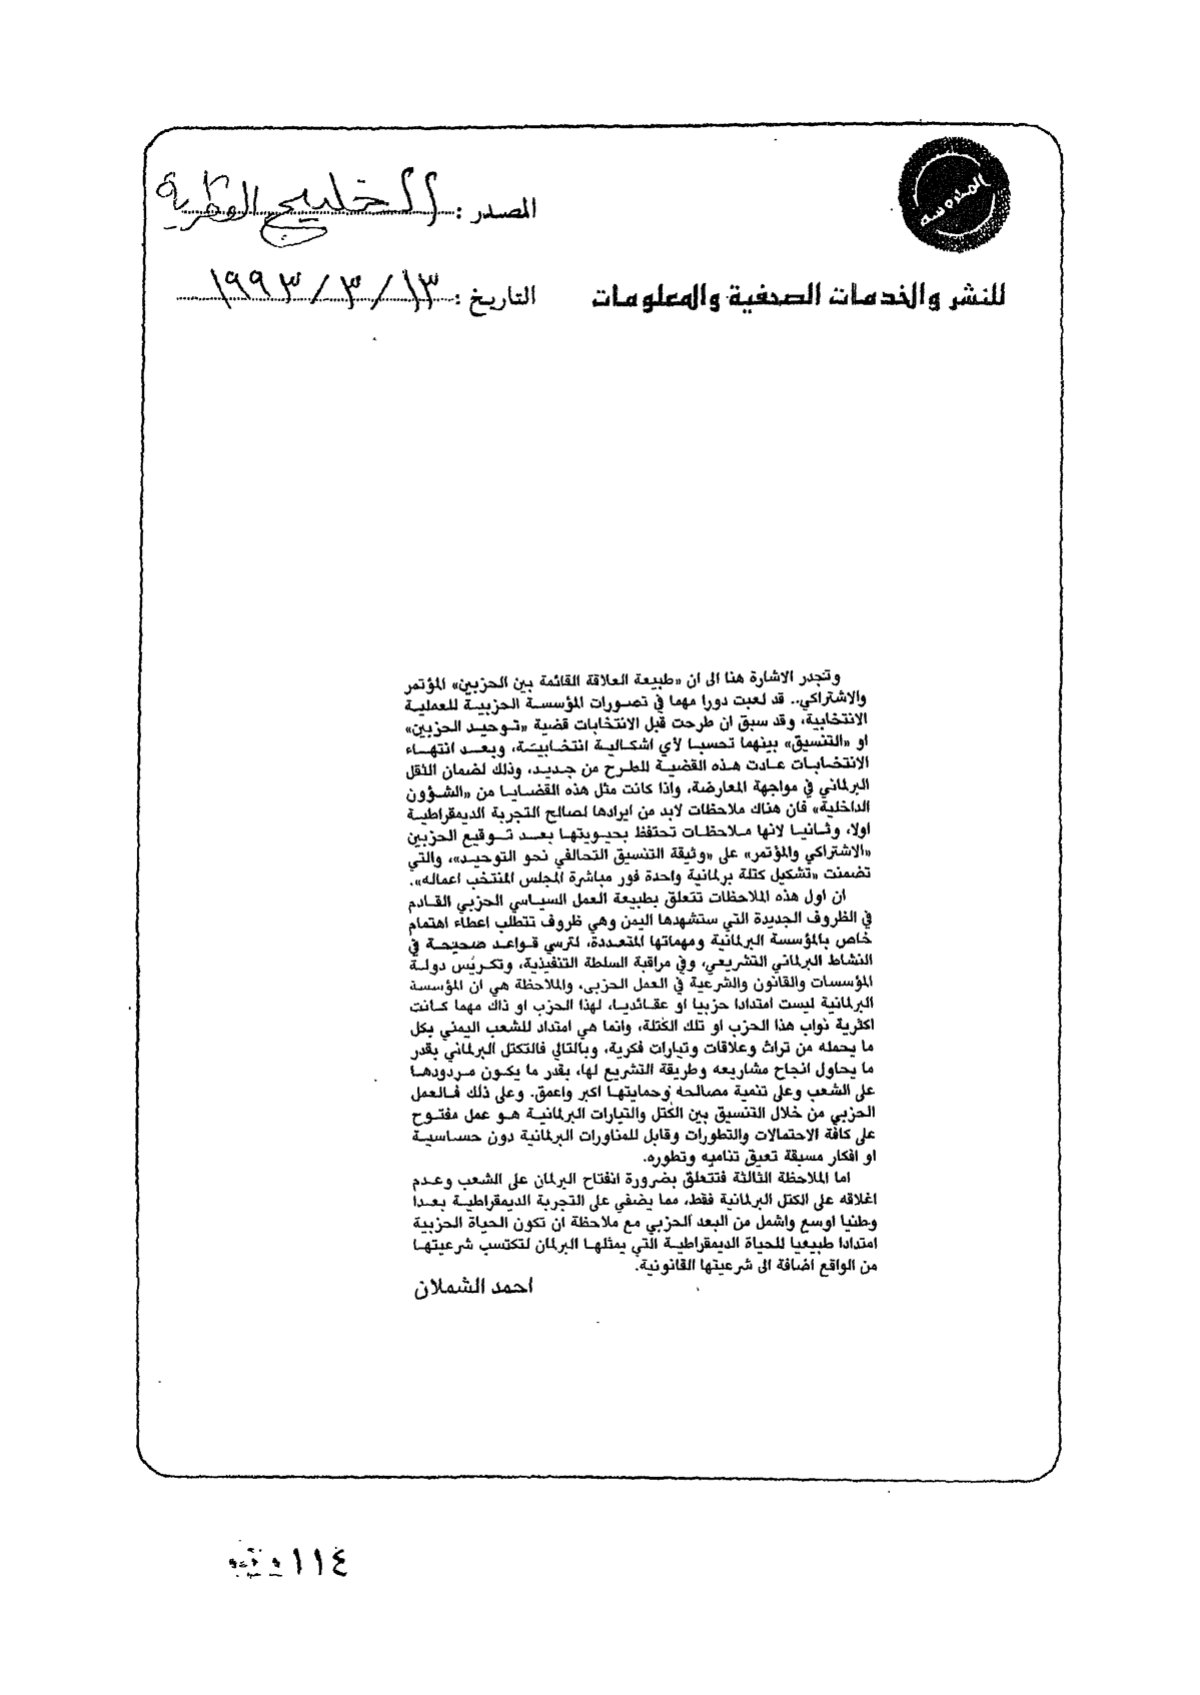 المحروسة
المصدر : الخليج القطرية
للنشر والخدمات الصحفية والمعلومات
التاريخ : ١٩٩٣/٣/١٣
وتجدر الاشارة هنا الى ان «طبيعة العلاقة القائمة بين الحزبين» المؤتمر
والاشتراكي.. قد لعبت دورا مهما في تصورات المؤسسة الحزبية للعملية
الانتخابية، وقد سبق ان طرحت قبل الانتخابات قضية «توحيد الحزبين»
او «التنسيق» بينهما تحسبا لأي اشكالية انتخابية، وبعد انتهاء
الانتخابات عادت هذه القضية للطرح من جديد، وذلك لضمان الثقل
البرلماني في مواجهة المعارضة، واذا كانت مثل هذه القضايا من «الشؤون
الداخلية» فان هناك ملاحظات لابد من ايرادها لصالح التجربة الديمقراطية
اولا، وثانيا لانها ملاحظات تحتفظ بحيويتها بعد توقيع الحزبين
«الاشتراكي والمؤتمر» على «وثيقة التنسيق التحالفي نحو التوحيد»، والتي
تضمنت «تشكيل كتلة برلمانية واحدة فور مباشرة المجلس المنتخب اعماله».
ان اول هذه الملاحظات تتعلق بطبيعة العمل السياسي الحزبي القادم
في الظروف الجديدة التي ستشهدها اليمن وهي ظروف تتطلب اعطاء اهتمام
خاص بالمؤسسة البرلمانية ومهماتها المتعددة، لترسي قواعد صحيحة في
النشاط البرلماني التشريعي، وفي مراقبة السلطة التنفيذية، وتكريس دولة
المؤسسات والقانون والشرعية في العمل الحزبي، والملاحظة هي ان المؤسسة
البرلمانية ليست امتدادا حزبيا او عقائديا، لهذا الحزب او ذاك مهما كانت
اكثرية نواب هذا الحزب او تلك الكتلة، وانما هي امتداد للشعب اليمني بكل
ما يحمله من تراث وعلاقات وتيارات فكرية، وبالتالي فالتكتل البرلماني بقدر
ما يحاول انجاح مشاريعه وطريقة التشريع لها، بقدر ما يكون مردودها
على الشعب وعلى تنمية مصالحه وحمايتها اكبر واعمق. وعلى ذلك فالعمل
الحزبي من خلال التنسيق بين الكتل والتيارات البرلمانية هو عمل مفتوح
على كافة الاحتمالات والتطورات وقابل للمناورات البرلمانية دون حساسية
او افكار مسبقة تعيق تناميه وتطوره.
اما الملاحظة الثالثة فتتعلق بضرورة انفتاح البرلمان على الشعب وعدم
اغلاقه على الكتل البرلمانية فقط، مما يضفي على التجربة الديمقراطية بعدا
وطنيا اوسع واشمل من البعد الحزبي مع ملاحظة ان تكون الحياة الحزبية
امتدادا طبيعيا للحياة الديمقراطية التي يمثلها البرلمان لتكتسب شرعيتها
من الواقع اضافة الى شرعيتها القانونية.
احمد الشملان
١١٤